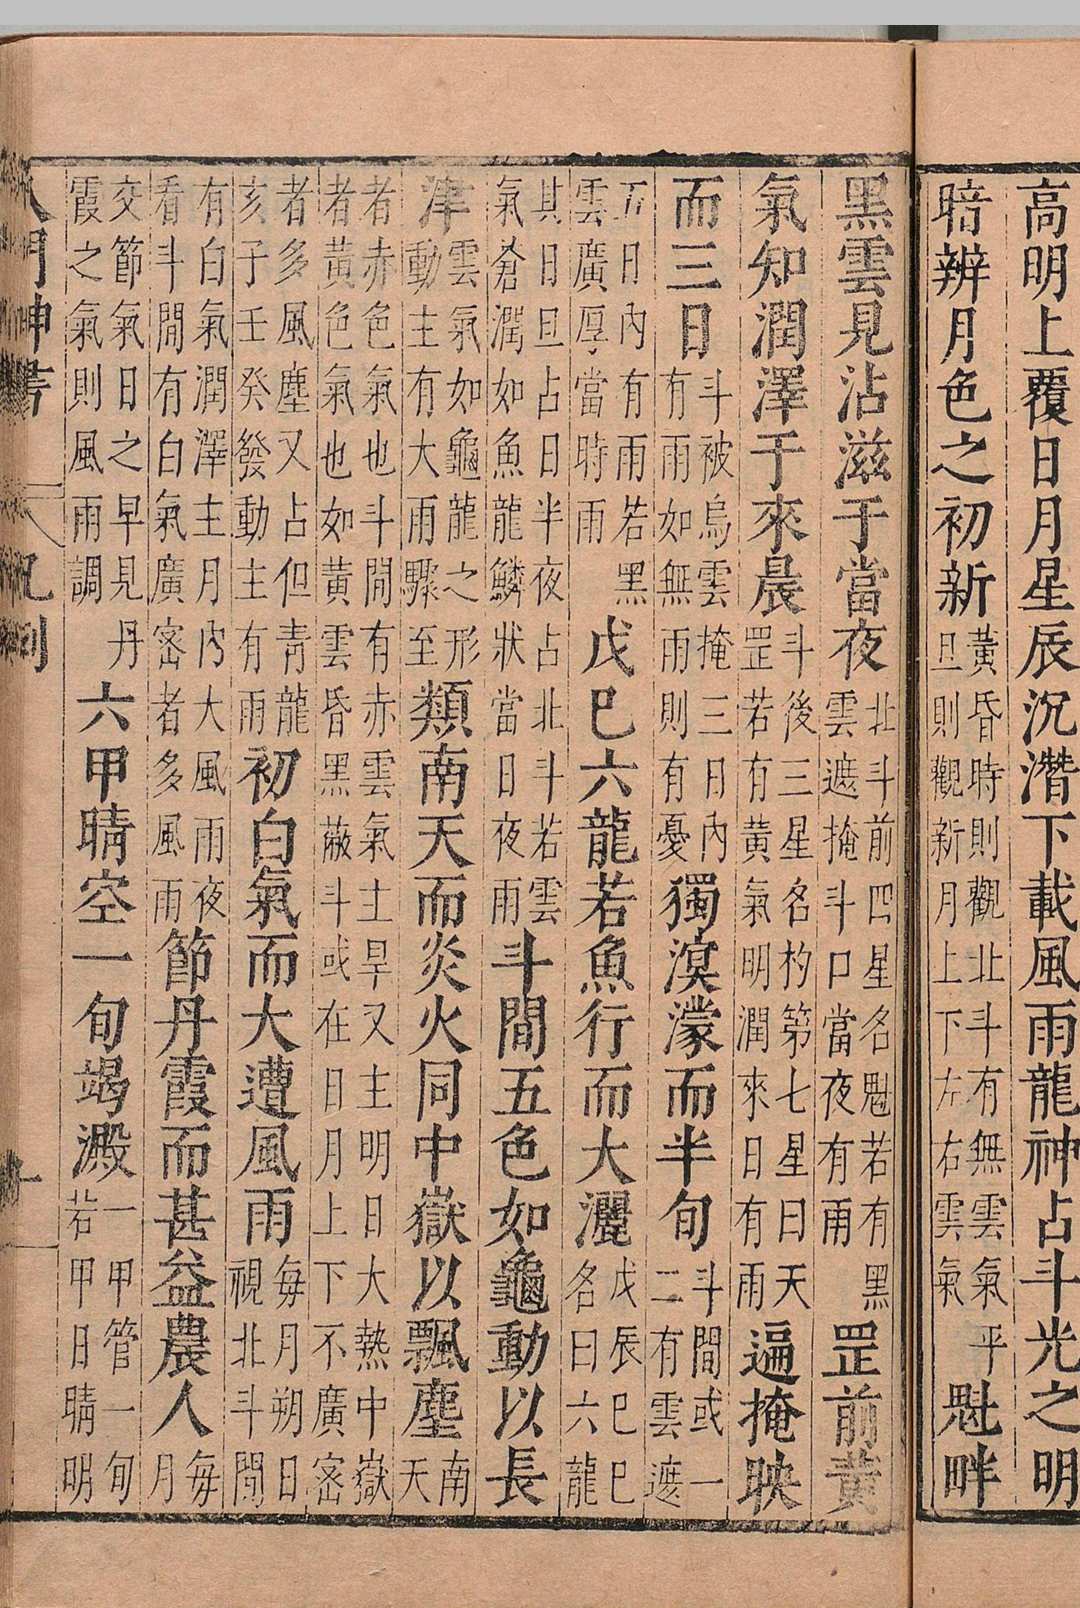 高明上覆日月星辰沉潛下載風雨龍神占斗光之明
暗辨月色之初新
黃昏時則觀北斗有無雲氣平
旦則觀新月上下左右雲氣
魁畔
黑雲見沾滋于當夜
北斗前四星名魁若有黑
雲遮掩斗口當夜有雨
罡前黃
氣知潤澤于來晨
斗後三星名杓第七星曰天
罡若有黃氣明潤來日有雨
遍掩映
而三日
斗被烏雲掩三日內
有雨如無雨則有憂
獨溟濛而半旬
斗間或一
二有雲遮
五日內有雨若黑
雲廣厚當時雨
戊巳六龍若魚行而大灑
戊辰巳巳
名曰六龍
其日旦占日半夜占北斗若雲
氣蒼潤如魚龍鱗狀當日夜雨
斗間五色如龜動以長
津
雲氣如龜龍之形
動主有大雨驟至
類南天而炎火同中嶽以飄塵
南
天
者赤色氣也斗間有赤雲氣土旱又主明日大熱中嶽
者黃色氣也如黃雲昏黑蔽斗或在日月上下不廣密
者多風塵又占但青龍
亥子壬癸發動主有雨
初白氣而大遭風雨
每月朔日
視北斗間
有白氣潤澤主月內大風雨夜
看斗間有白氣廣密者多風雨
節丹霞而甚益農人
每
月
交節氣日之早見丹
霞之氣則風雨調
六甲晴空一旬竭澱
一甲管一旬
若甲日晴明
八門神書
八
况例
十